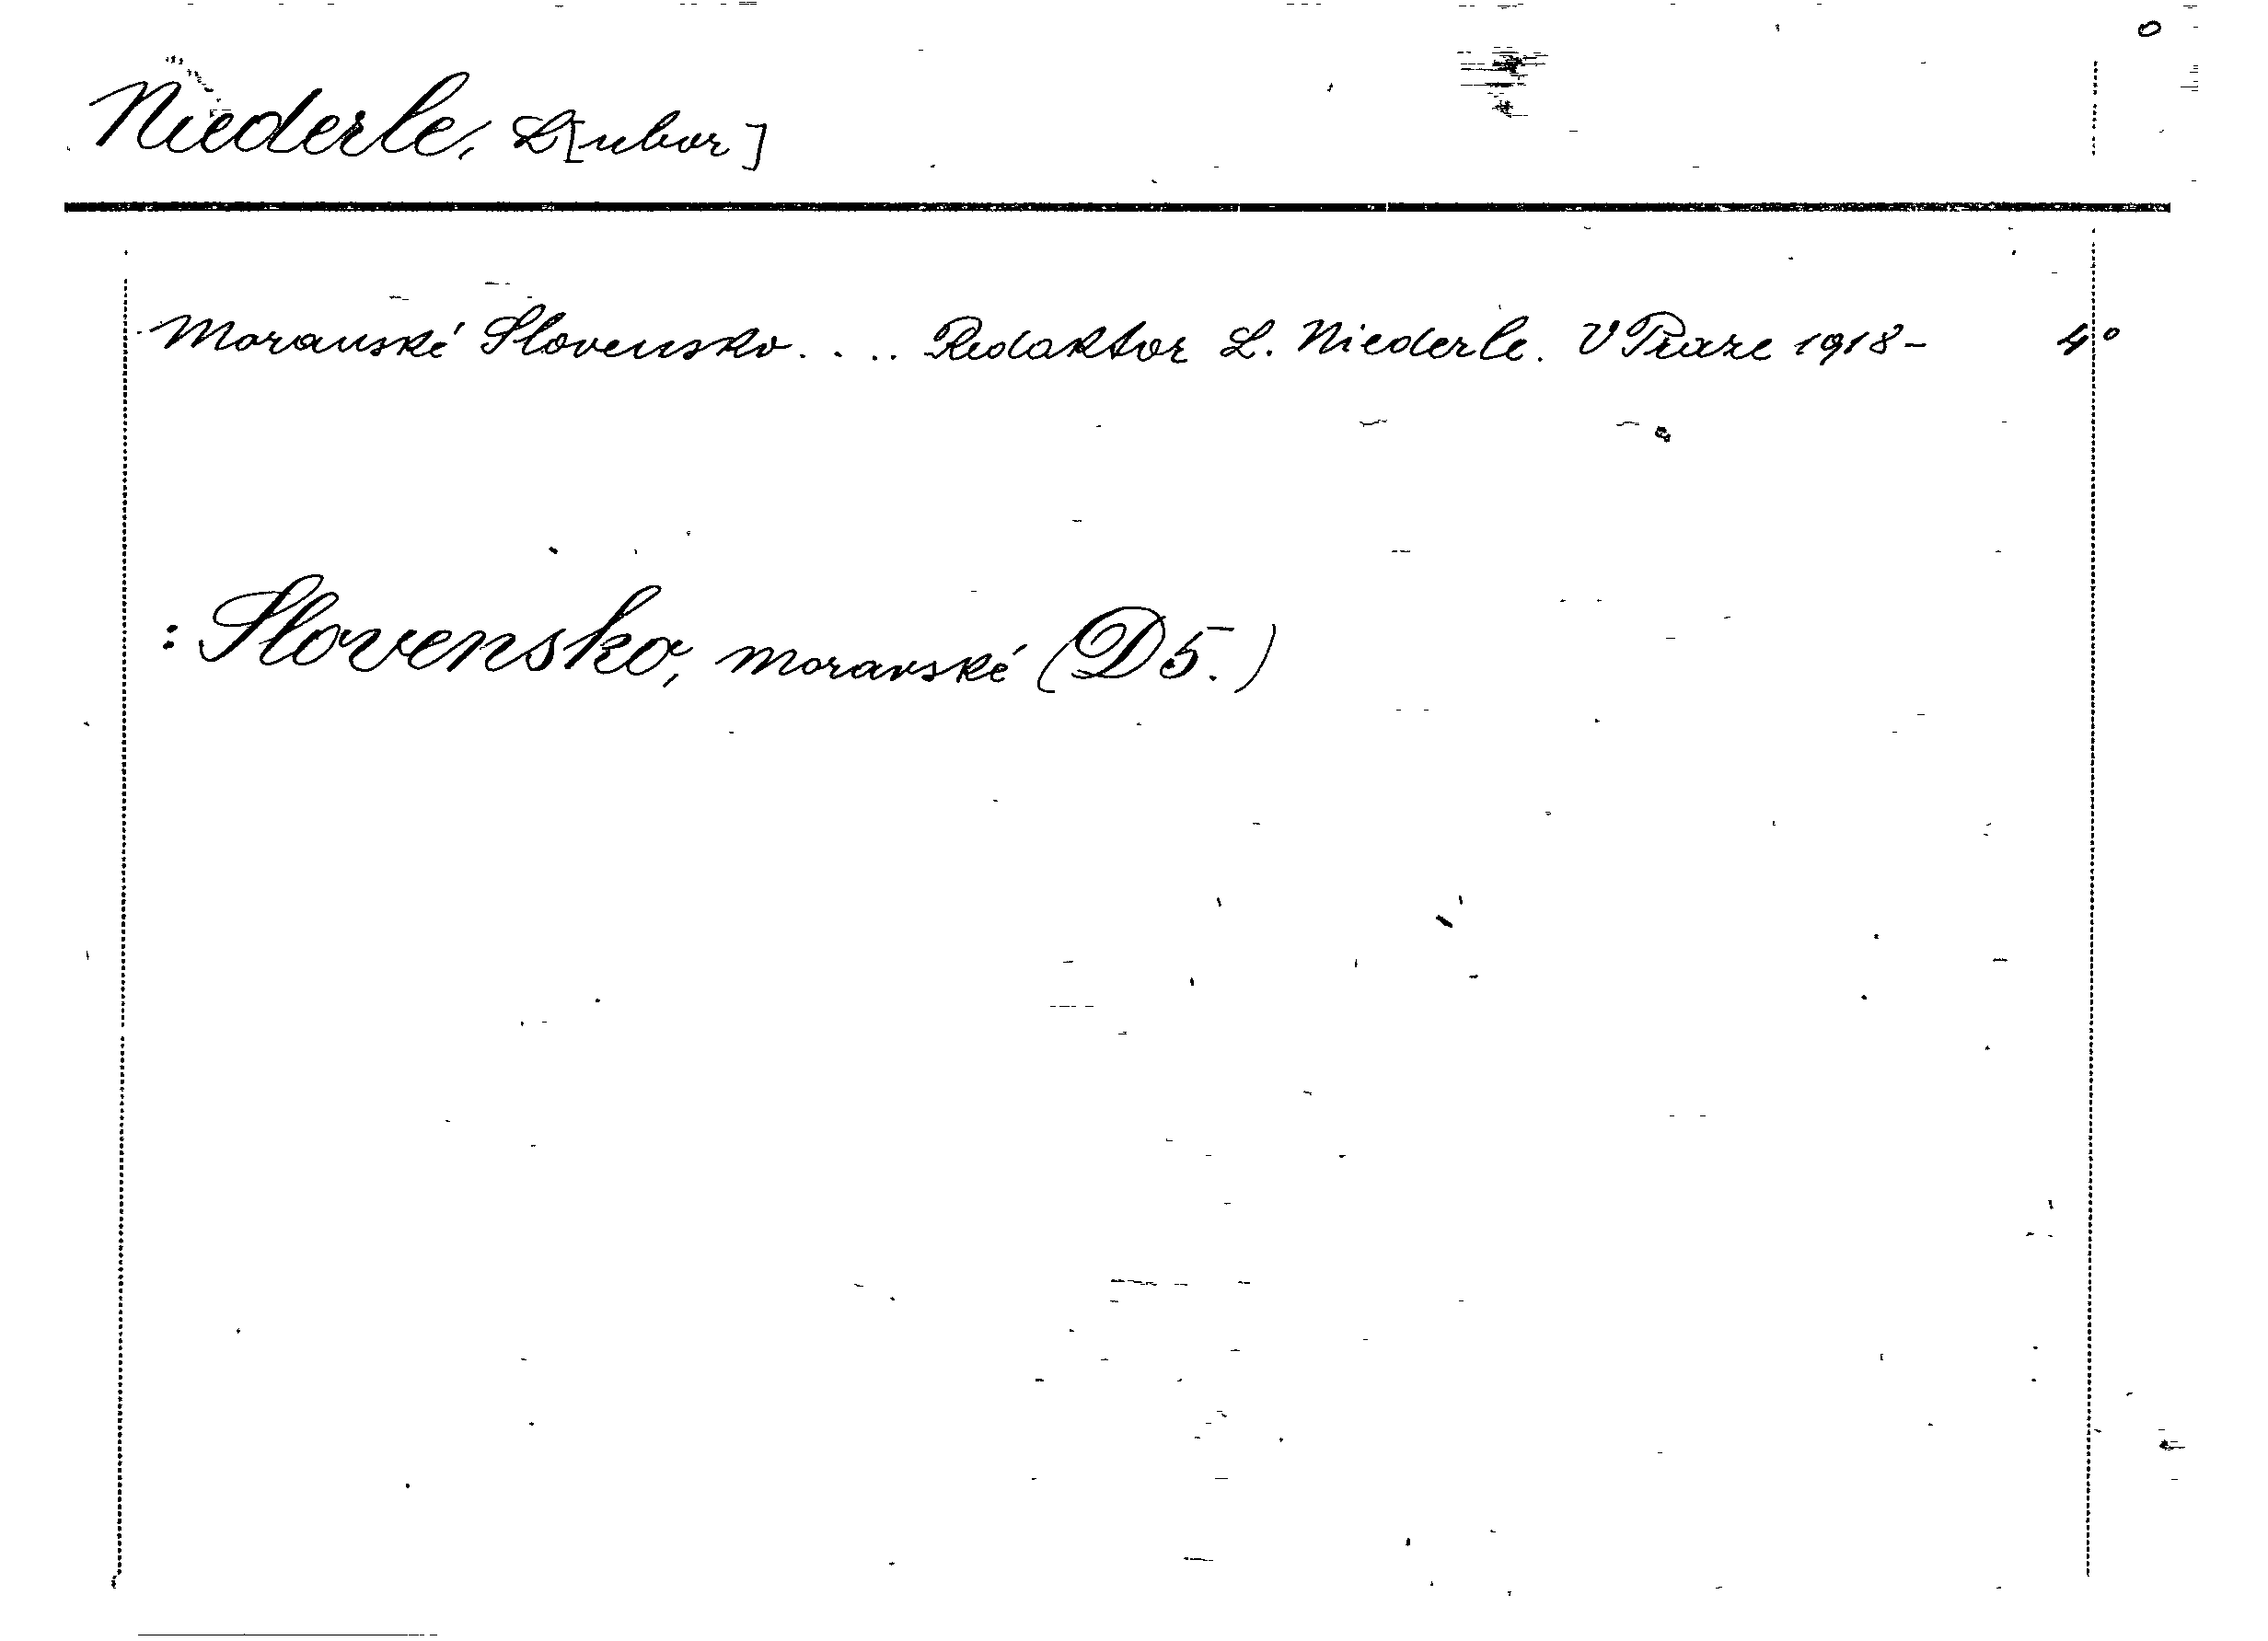 Niederle, L[ubor]
Moravské Slovensko. . . . Redaktor L. Niederle. V Praze 1918- 4°
: Slovensko, moravské (D5.)